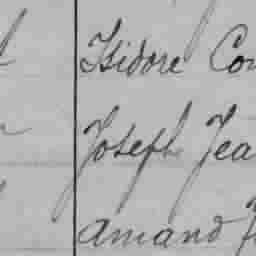 Isidore Co
Joseph Jea
Amand J